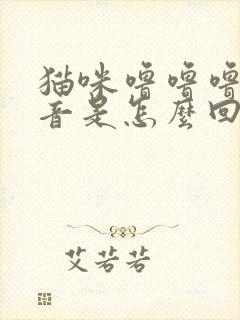 猫咪噜噜噜
音是怎麼回
艾若若